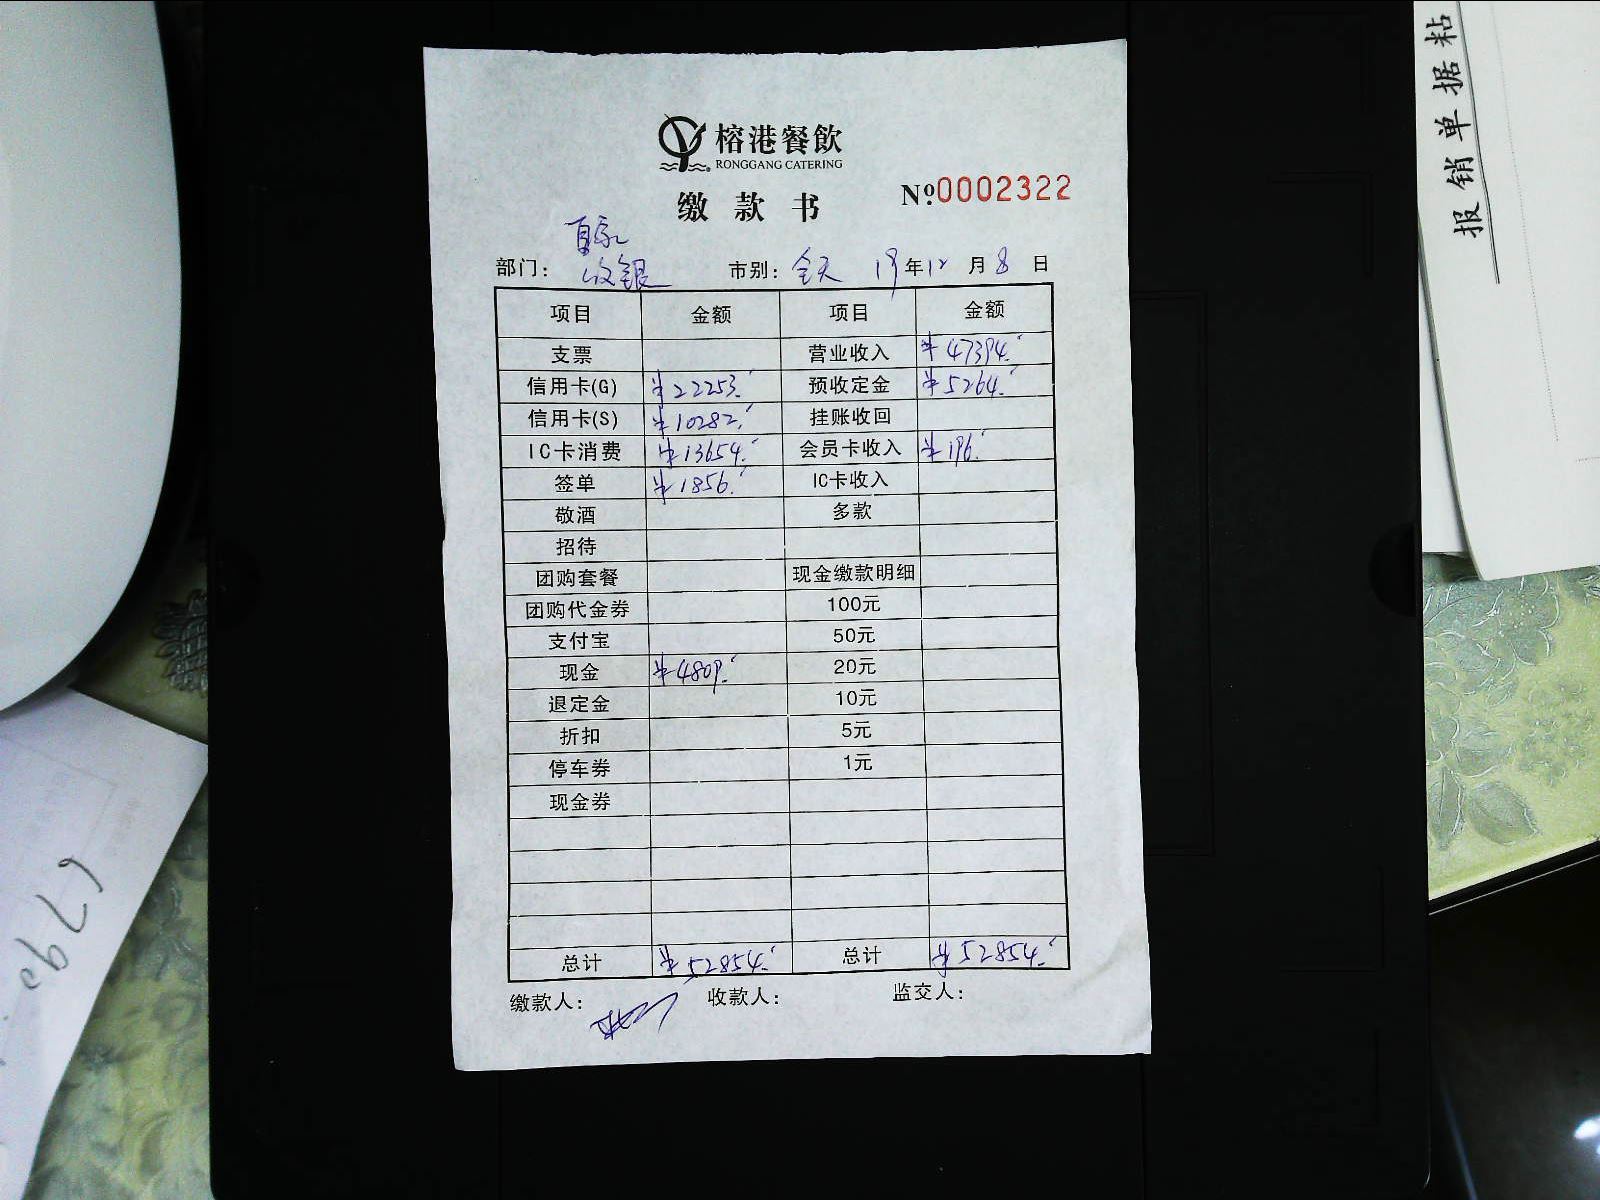 榕港餐飲
RONGGANG CATERING
缴款书
№0002322
部门： 收银 市别： 全天 19年12月8日
项目 金额 项目 金额
支票 营业收入 ¥47394.-
信用卡(G) ¥22253.- 预收定金 ¥5264.-
信用卡(S) ¥10282.- 挂账收回
IC卡消费 ¥13654.- 会员卡收入 ¥196.-
签单 ¥1856.- IC卡收入
敬酒 多款
招待
团购套餐 现金缴款明细
团购代金券 100元
支付宝 50元
现金 ¥4809.- 20元
退定金 10元
折扣 5元
停车券 1元
现金券
总计 ¥52854.- 总计 ¥52854.-
缴款人： 收款人： 监交人：
报销单据粘
6790